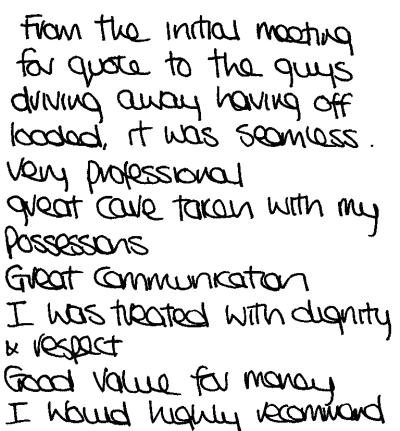 From the initial meeting
for quote to the guys
driving away having off
loaded, it was seamless.
Very professional
great care taken with my
Possessions
Great Communication
I was treated with dignity
& respect
Good value for money
I would highly recommend